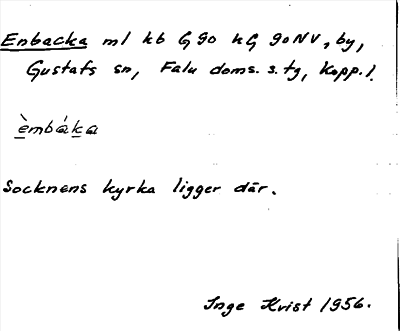 Enbacka ml kb G 90 kG 90NV, by,
Gustafs sn, Falu doms. s. tg, Kopp. l.
èmbáka
Socknens kyrka ligger där.
Inge Kvist 1956.